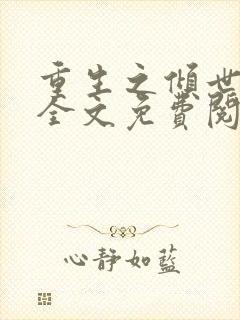 重生之倾世
全文免費閱
心静如藍